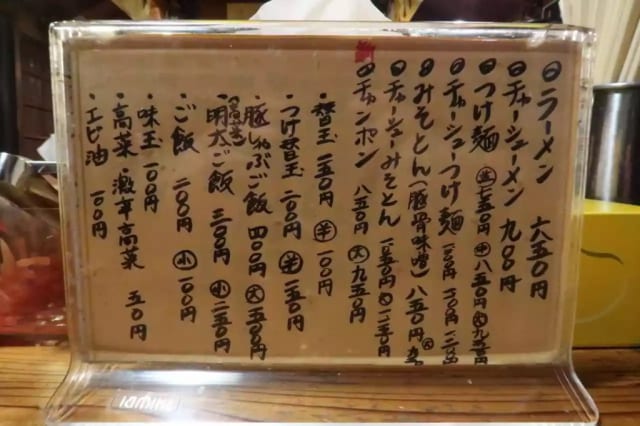 ラーメン 六五〇円
チャーシューメン 九〇〇円
つけ麺 並 七五〇円 中 八五〇円 大 九五〇円
チャーシューつけ麺 一〇〇〇円
みそとん(豚骨味噌) 八五〇円 大
チャーシューみそとん 大
チャンポン 八五〇円 大 九五〇円
・替玉 一五〇円 半 一〇〇円
・つけ替玉 二〇〇円 半 一五〇円
・豚ねぶご飯 四〇〇円 大 五〇〇円
・明太ご飯 三〇〇円 小 二五〇円
・ご飯 二〇〇円 小 一〇〇円
・味玉 一〇〇円
・高菜・激辛高菜 五〇円
・エビ油 一〇〇円